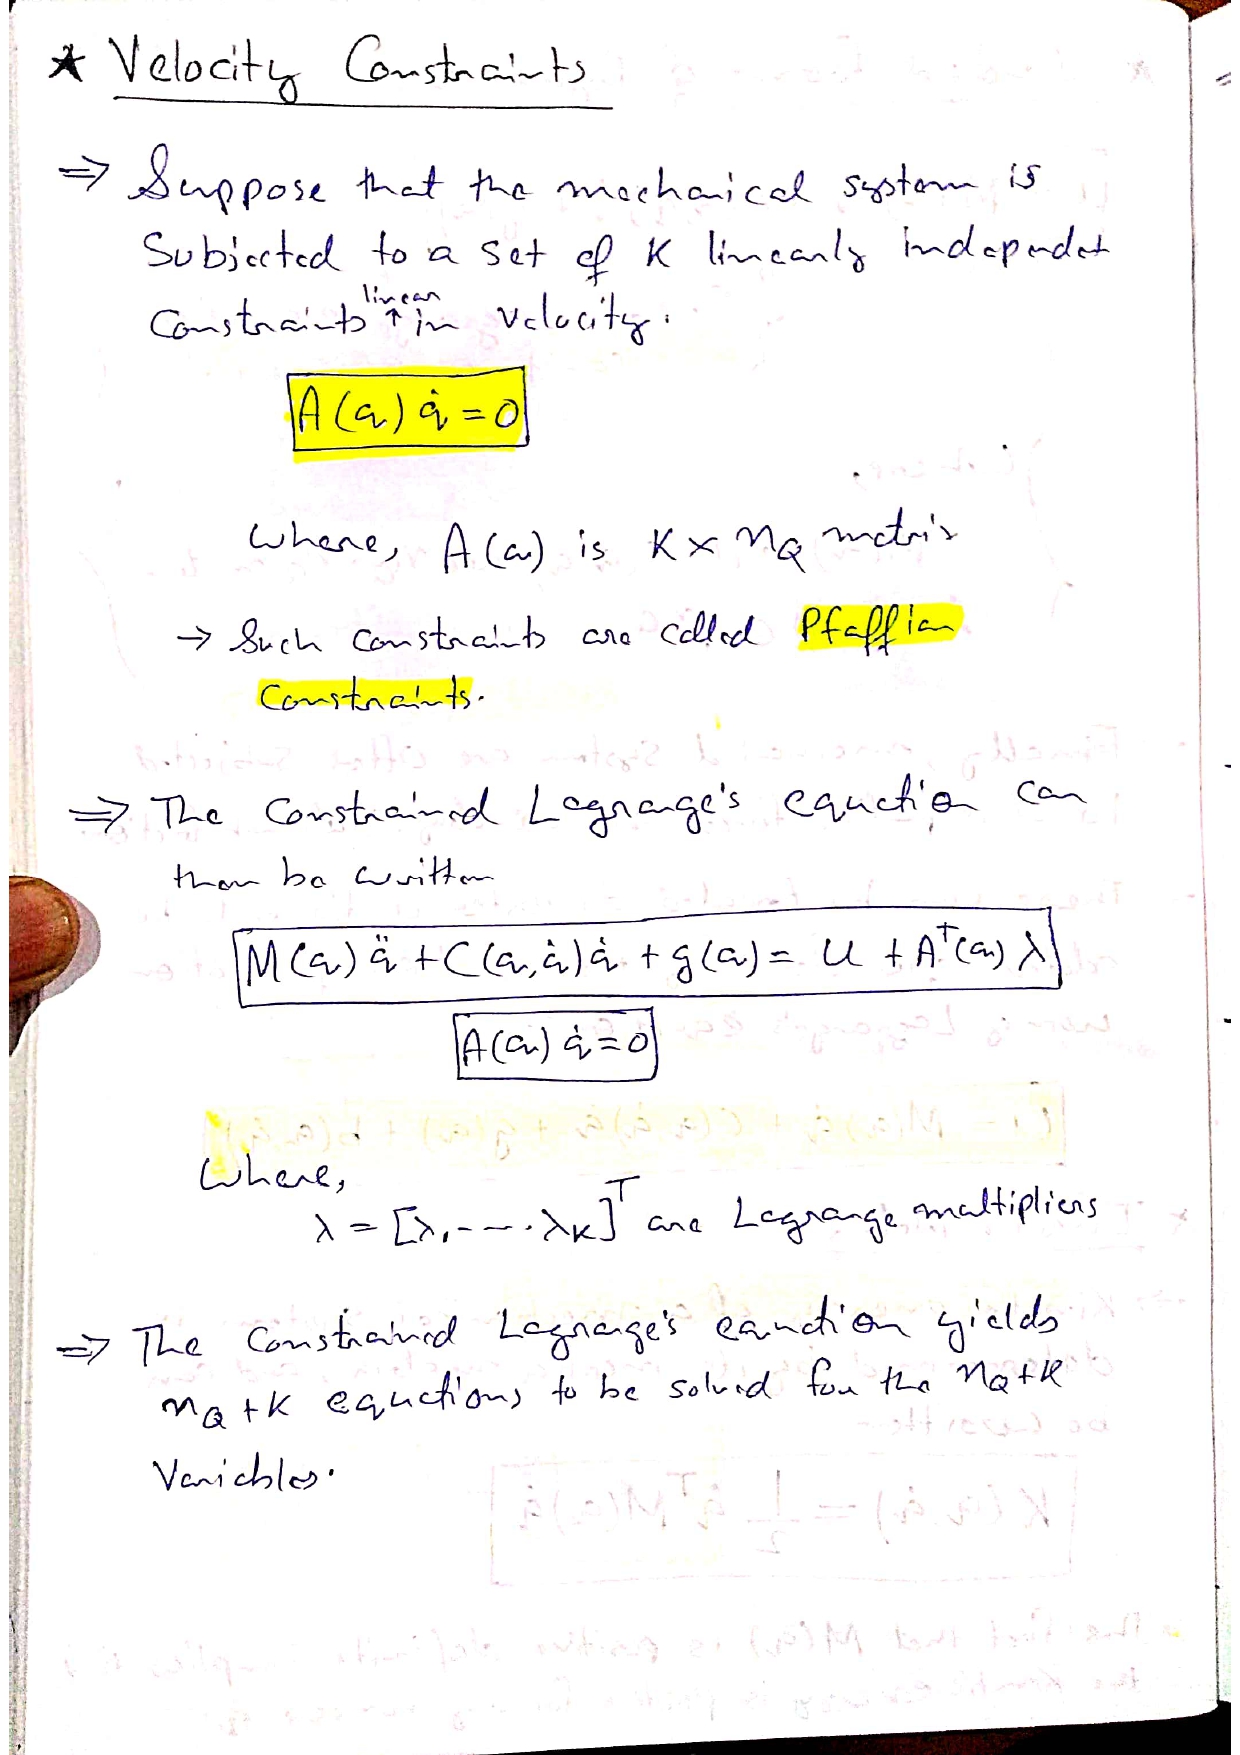 * Velocity Constraints
⇒ Suppose that the mechanical system is
Subjected to a set of K linearly independet
Constraints linear in velocity.
A(q) q̇ = 0
Where, A(q) is K × n_Q matrix
→ Such constraints are called Pfaffian
Constraints.
⇒ The Constrained Lagrange's equation can
then be written
M(q) q̈ + C(q, q̇) q̇ + g(q) = u + Aᵀ(q) λ
A(q) q̇ = 0
Where,
λ = [λ₁ - - - · λ_K]ᵀ are Lagrange multipliers
⇒ The Constrained Lagrange's equation yields
n_Q + K equations to be solved for the n_Q + K
Variables.